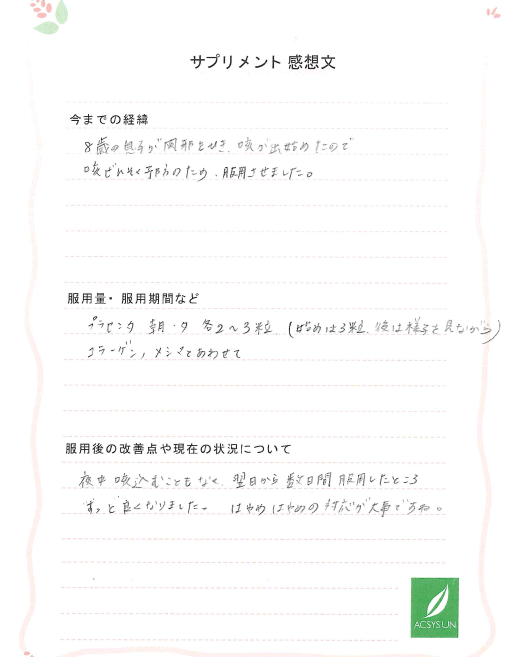 サプリメント 感想文
今までの経緯
8歳の息子が風邪をひき、咳が出始めたので
咳ぜんそく予防のため、服用させました。
服用量・服用期間など
プラセンタ 朝・夕 各2〜3粒 (始めは3粒、後は様子を見ながら)
コラーゲン, メシマとあわせて
服用後の改善点や現在の状況について
夜中 咳込むこともなく、翌日から数日間服用したところ
ずっと良くなりました。 はやめはやめの対応が大事ですね。
ACSYSUN